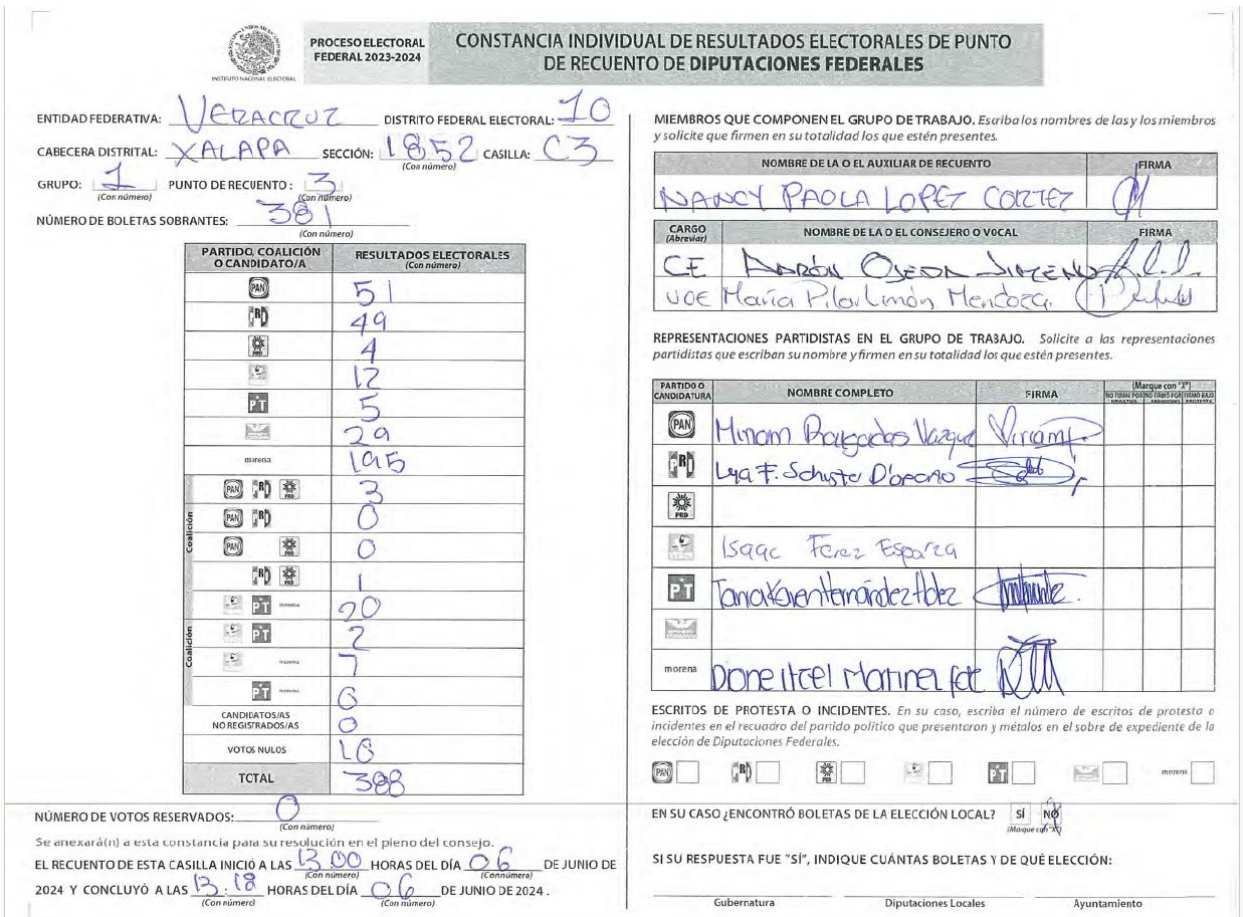 INSTITUTO NACIONAL ELECTORAL
PROCESO ELECTORAL
FEDERAL 2023-2024
CONSTANCIA INDIVIDUAL DE RESULTADOS ELECTORALES DE PUNTO
DE RECUENTO DE DIPUTACIONES FEDERALES
ENTIDAD FEDERATIVA: VERACRUZ DISTRITO FEDERAL ELECTORAL: 10
CABECERA DISTRITAL: XALAPA SECCIÓN: 1852 CASILLA: C3
(Con número)
GRUPO: 1 PUNTO DE RECUENTO: 3
(Con número) (Con número)
NÚMERO DE BOLETAS SOBRANTES: 381
(Con número)
PARTIDO, COALICIÓN O CANDIDATO/A RESULTADOS ELECTORALES
(Con número)
PAN 51
PRD 49
PRD 4
12
PT 5
29
morena 195
Coalición
PAN PRD 3
PAN 0
PAN PRD 0
PRD 1
Coalición
PT morena 20
PT 2
morena 7
PT morena 6
CANDIDATOS/AS
NO REGISTRADOS/AS 0
VOTOS NULOS 16
TOTAL 388
NÚMERO DE VOTOS RESERVADOS: 0
(Con número)
Se anexará(n) a esta constancia para su resolución en el pleno del consejo.
EL RECUENTO DE ESTA CASILLA INICIÓ A LAS 13:00 HORAS DEL DÍA 06 DE JUNIO DE
(Con número) (Con número)
2024 Y CONCLUYÓ A LAS 13:18 HORAS DEL DÍA 06 DE JUNIO DE 2024.
(Con número) (Con número)
MIEMBROS QUE COMPONEN EL GRUPO DE TRABAJO. Escriba los nombres de las y los miembros
y solicite que firmen en su totalidad los que estén presentes.
NOMBRE DE LA O EL AUXILIAR DE RECUENTO FIRMA
NANCY PAOLA LOPEZ CORTEZ
CARGO
(Abreviar) NOMBRE DE LA O EL CONSEJERO O VOCAL FIRMA
CE AARÓN OJEDA JIMENO
VOE María Pilar Limón Mendoza.
REPRESENTACIONES PARTIDISTAS EN EL GRUPO DE TRABAJO. Solicite a las representaciones
partidistas que escriban su nombre y firmen en su totalidad los que estén presentes.
PARTIDO O
CANDIDATURA NOMBRE COMPLETO FIRMA (Marque con "X")
PAN Miriam
Lya F. Schuste D'oporto
PRD
Isaac Ferez Esparza
PT Hernández Hdez
morena Diane Itcel
ESCRITOS DE PROTESTA O INCIDENTES. En su caso, escriba el número de escritos de protesta o
incidentes en el recuadro del partido político que presentaron y métalos en el sobre de expediente de la
elección de Diputaciones Federales.
PAN PRD PT morena
EN SU CASO ¿ENCONTRÓ BOLETAS DE LA ELECCIÓN LOCAL? SÍ NO
(Marque con "X")
SI SU RESPUESTA FUE "SÍ", INDIQUE CUÁNTAS BOLETAS Y DE QUÉ ELECCIÓN:
Gubernatura Diputaciones Locales Ayuntamiento